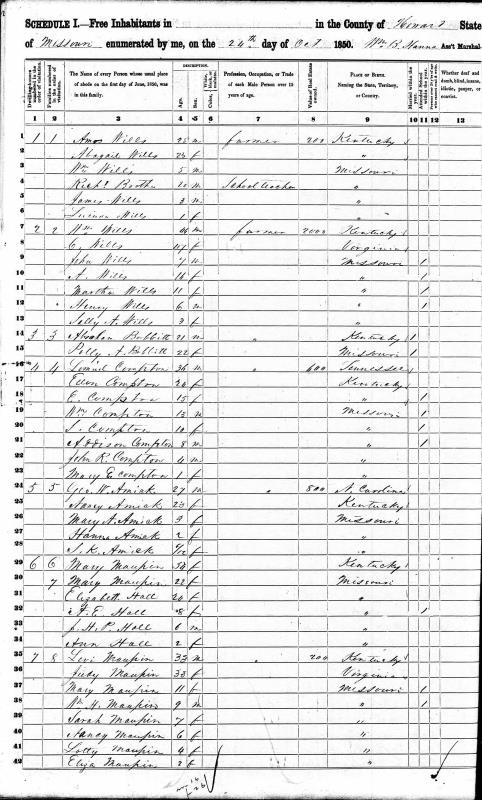 SCHEDULE I.—Free Inhabitants in in the County of Howard State
of Missouri enumerated by me, on the 24th day of Oct 1850. Wm B. Hanna Ass't Marshal.
DESCRIPTION.
The Name of every Person whose usual place of abode on the first day of June, 1850, was in this family.
Age. Sex.
Profession, Occupation, or Trade of each Male Person over 15 years of age.
Value of Real Estate owned.
PLACE OF BIRTH. Naming the State, Territory, or Country.
Whether deaf and dumb, blind, insane, idiotic, pauper, or convict.
1 2 3 4 5 6 7 8 9 10 11 12 13
1 1 1 Amos Wills 25 m farmer 200 Kentucky
2 Abagail Wills f "
3 Wm Wills 5 m Missouri
4 Richd 20 m School teacher "
5 James Wills 3 m "
6 Wills 1 f "
7 2 2 Wm Wills 46 m farmer 2000 Kentucky
8 C. Wills f Virginia
9 John Wills m Missouri 1
10 A. Wills 16 f " 1
11 Martha Wills 11 f " 1
12 Henry Wills 6 m " 1
13 Sally A. Wills 3 f "
14 3 3 Abraham Bobbitt 21 m " Kentucky 1
15 Polly A. Bobbitt 22 f Missouri 1
16 4 4 Samuel Compton 36 m " 600 Tennessee
17 Ellen Compton f Kentucky
18 E. Compton 15 f " 1
19 Wm Compton 13 m Missouri 1
20 S. Compton 10 f " 1
21 Addison Compton 8 m " 1
22 John R. Compton 4 m "
23 Mary E. Compton 1 f "
24 5 5 Geo. W. Amick 27 m " 800 N. Carolina
25 Nancy Amick 23 f Kentucky
26 Mary A. Amick 3 f Missouri
27 Hanna Amick 2 f "
28 S. K. Amick f "
29 6 6 Mary Maupin 54 f Kentucky
30 7 Mary Maupin 22 f Missouri
31 Elizabeth Hall 26 f "
32 E. Hall 8 f " 1
33 J. H. P. Hall 6 m "
34 Ann Hall 2 f "
35 7 8 Levi Maupin 33 m " 200 Kentucky
36 Judy Maupin 33 f Virginia
37 Mary Maupin 11 f Missouri 1
38 Wm H. Maupin 9 m " 1
39 Sarah Maupin 7 f "
40 Nancy Maupin 6 f "
41 Lotty Maupin 4 f "
42 Eliza Maupin 2 f "